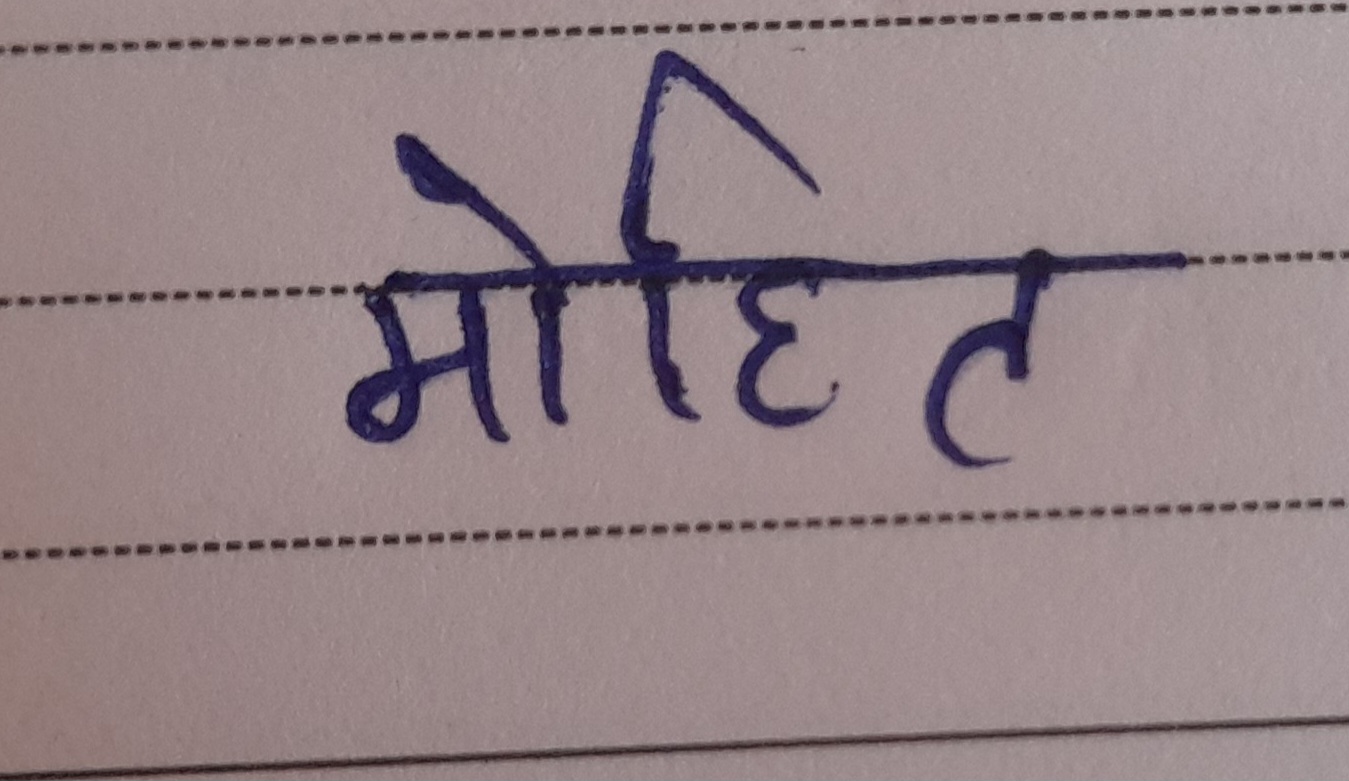 मोहित